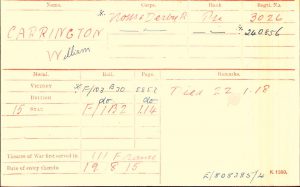 Name. Corps. Rank. Regtl. No.
CARRINGTON * Notts & Derby R Pte 3026
William — " — — " — * 240856
Medal. Roll. Page. Remarks.
VICTORY * F/103 B20 5852
BRITISH do do
15 STAR F/1B2 114
22.1.18
Theatre of War first served in (1) France
Date of entry therein 19.8.15
K 1380.